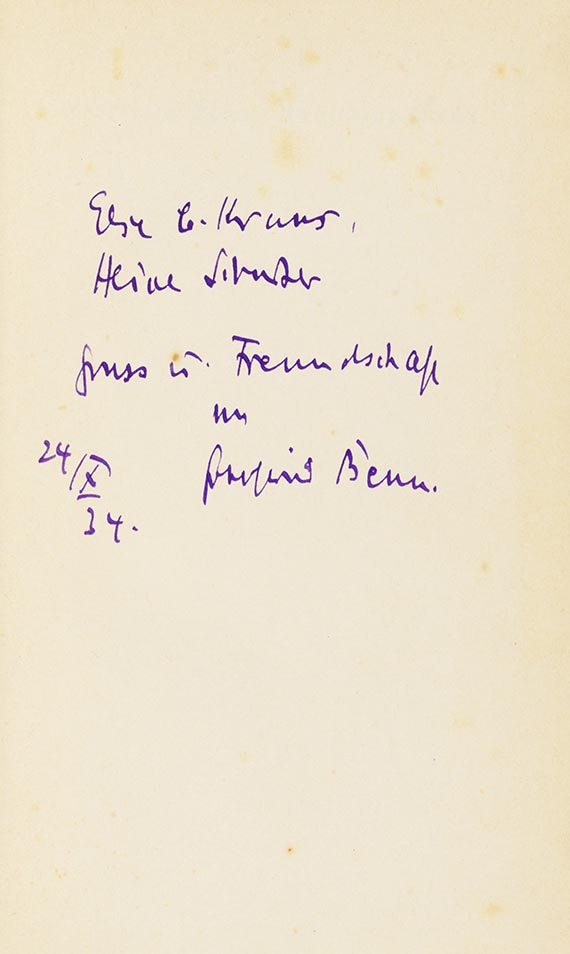 Else C. Kraus,
Heine Schuster
Gruss u. Freundschaft
von
Gottfried Benn.
24/X
34.